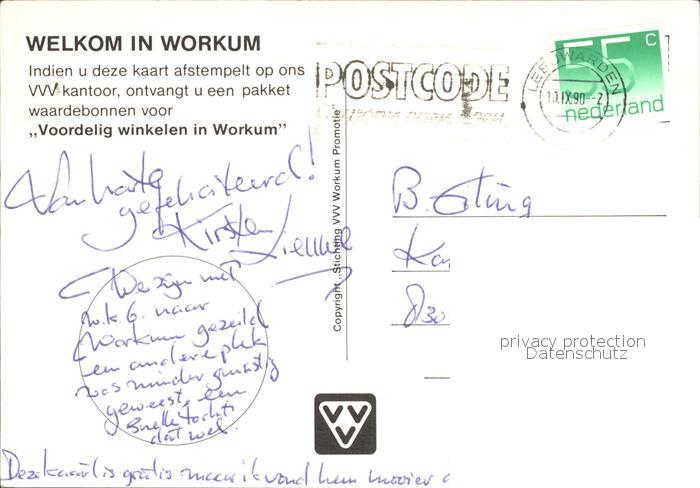 WELKOM IN WORKUM
Indien u deze kaart afstempelt op ons
VVV-kantoor, ontvangt u een pakket
waardebonnen voor
„Voordelig winkelen in Workum”
POSTCODE
LEEUWARDEN
10.IX.90
55 c
nederland
Van harte
gefeliciteerd!
Kirsten
We zijn met
w.k. 6 naar
Workum gezeild
een andere plek
was minder gunstig
geweest, een
snelle tocht
dat wel.
Deze kaart is gratis maar ik vond hem mooier
Copyright „Stichting VVV Workum Promotie”
B.
Ka
D 30
privacy protection
Datenschutz
VVV